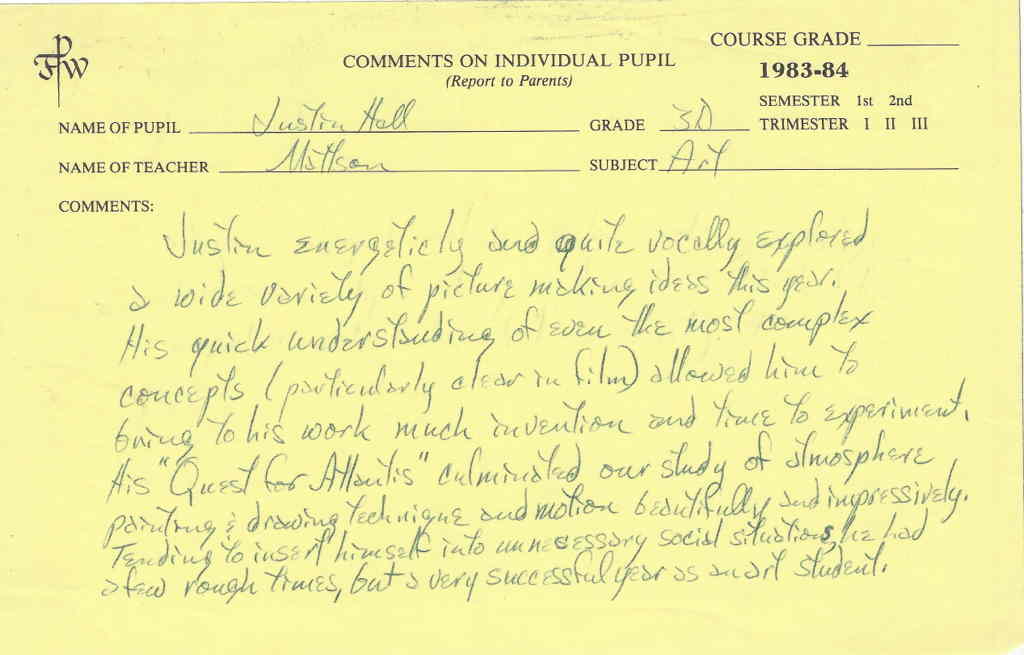 FPW
COURSE GRADE
COMMENTS ON INDIVIDUAL PUPIL
(Report to Parents)
1983-84
SEMESTER 1st 2nd
NAME OF PUPIL Justin Hall GRADE 3D TRIMESTER I II III
NAME OF TEACHER Mattson SUBJECT Art
COMMENTS:
Justin energeticly and quite vocally explored
a wide variety of picture making ideas this year.
His quick understanding of even the most complex
concepts (particularly clear in film) allowed him to
bring to his work much invention and time to experiment.
His "Quest for Atlantis" culminated our study of atmosphere,
painting & drawing technique and motion beautifully and impressively.
Tending to insert himself into unnecessary social situations, he had
a few rough times, but a very successful year as an art student.